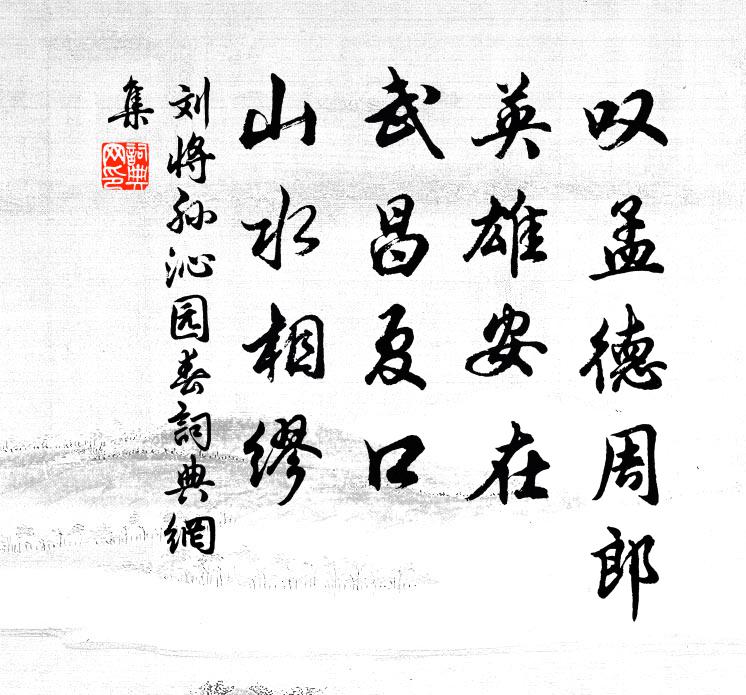 叹孟德周郎
英雄安在
武昌夏口
山水相缪
刘将孙沁园春詞典網
集
詞典
网印